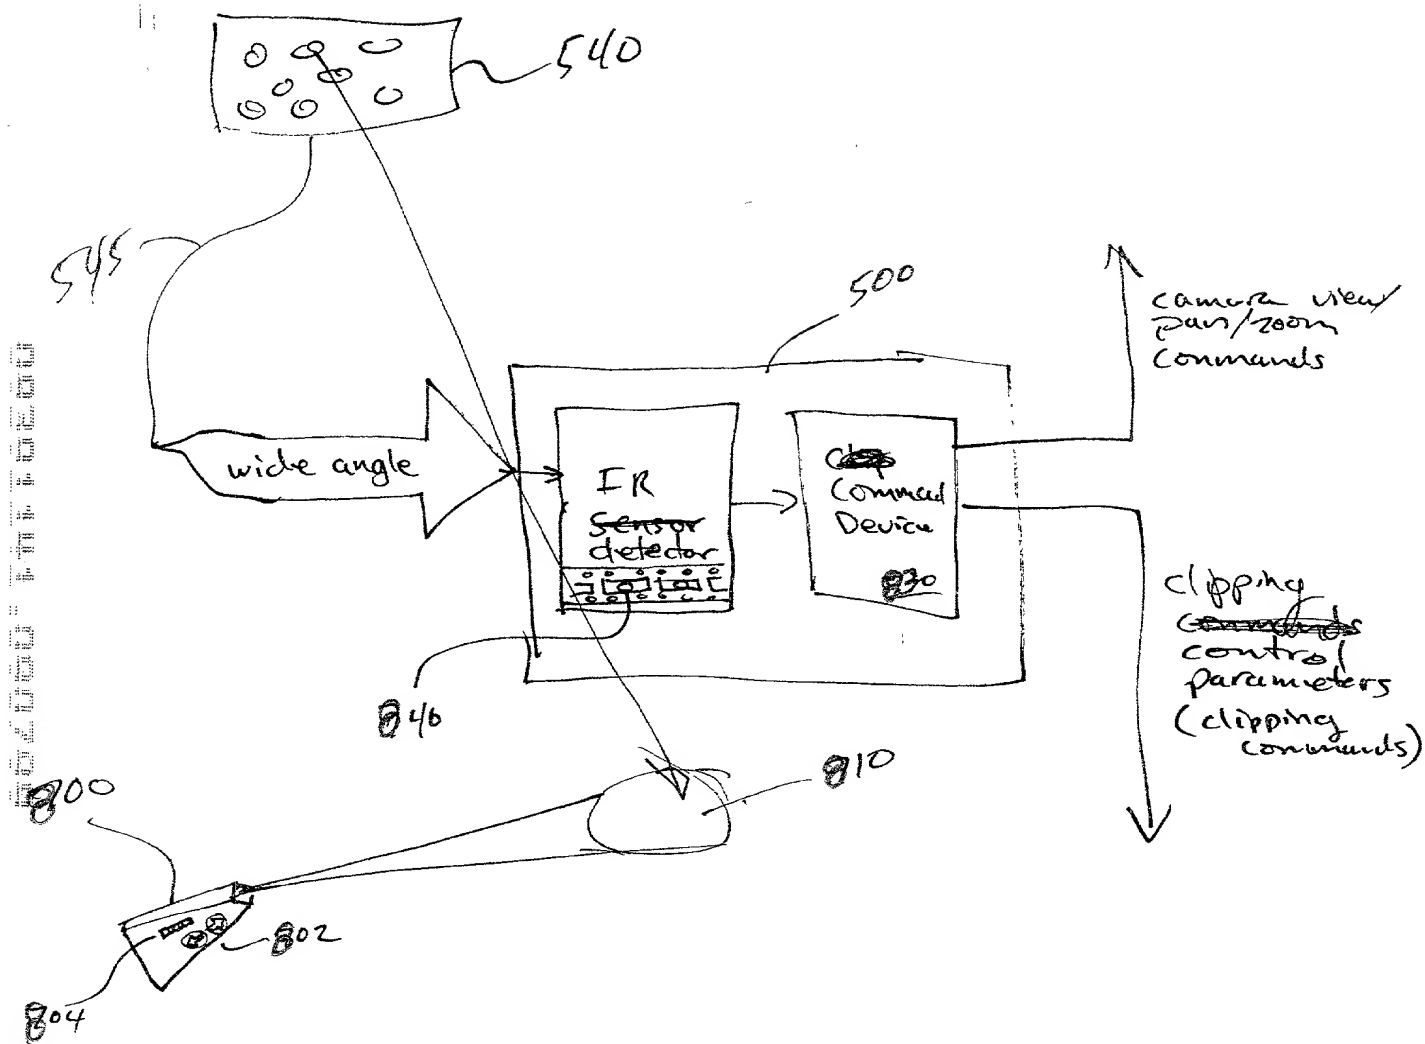 540
545
500
camera view/
pan/zoom
commands
wide angle
IR
Sensor
detector
Commad
Device
830
clipping
commands
control
parameters
(clipping
commands)
840
810
800
802
804